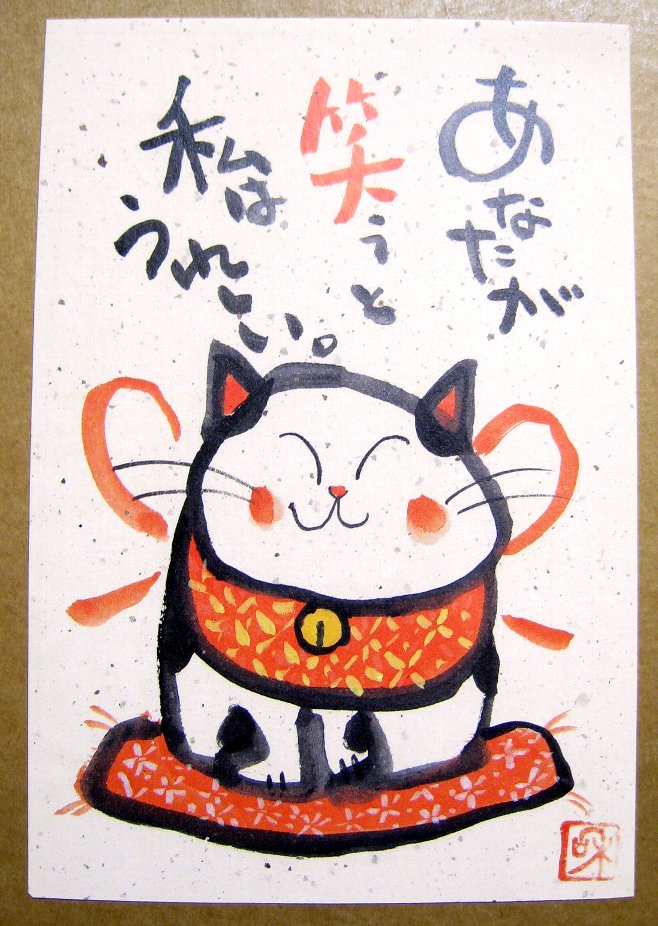 あなたが
笑うと
私は
うれしい。